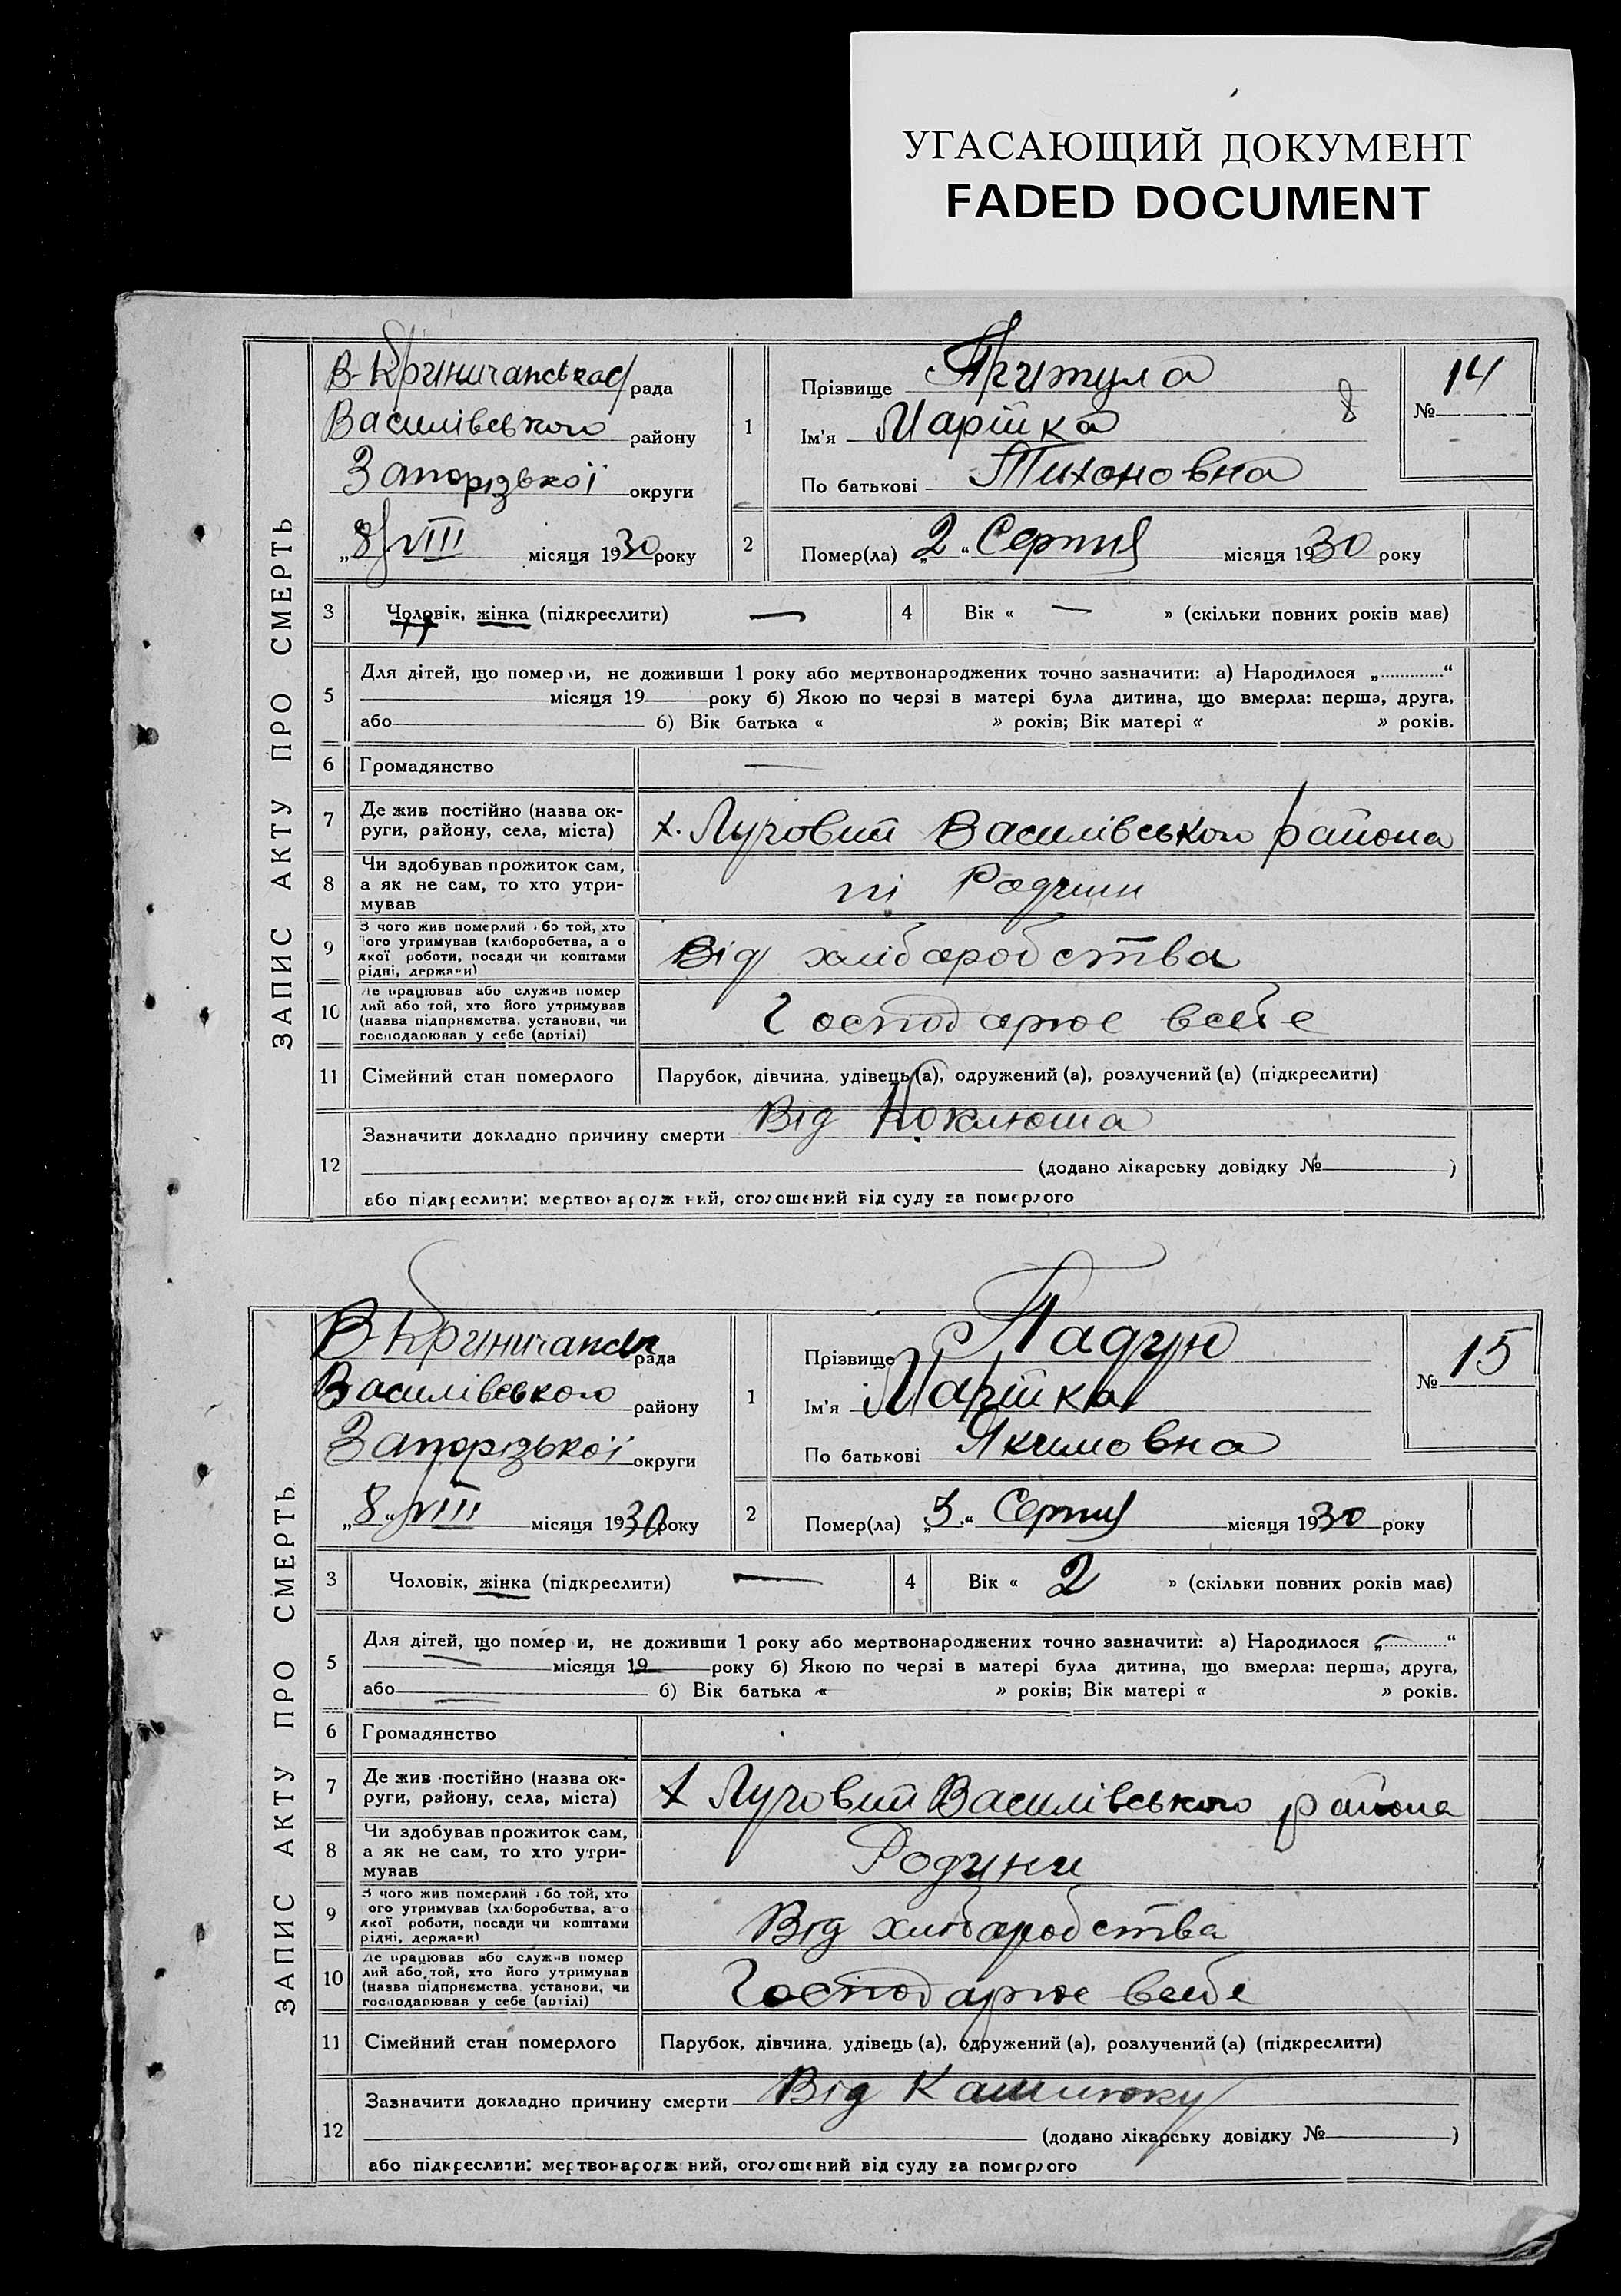 УГАСАЮЩИЙ ДОКУМЕНТ
FADED DOCUMENT
ЗАПИС АКТУ ПРО СМЕРТЬ
В-Криничанська рада
Василівського району
Запорізької округи
„8“ VIII місяця 1930 року
1
Прізвище Притула
Ім'я Марійка
По батькові Тихоновна
8
№ 14
2
Помер(ла) „2“ Серпня місяця 1930 року
3 Чоловік, жінка (підкреслити) —
4 Вік « — » (скільки повних років має)
5
Для дітей, що помер и, не доживши 1 року або мертвонароджених точно зазначити: а) Народилося „............“
місяця 19 року б) Якою по черзі в матері була дитина, що вмерла: перша, друга,
або б) Вік батька « » років; Вік матері « » років.
6 Громадянство —
7
Де жив постійно (назва ок-
руги, району, села, міста)
х. Луговий Василівського района
8
Чи здобував прожиток сам,
а як не сам, то хто утри-
мував
ні Родини
9
З чого жив померлий або той, хто
його утримував (хліборобства, а о
якої роботи, посади чи коштами
рідні, держави)
Від хліборобства
10
Де працював або служив помер
лий або той, хто його утримував
(назва підприємства, установи, чи
господарював у себе (артілі)
Господарює в себе
11 Сімейний стан померлого
Парубок, дівчина, удівець (а), одружений (а), розлучений (а) (підкреслити)
12
Зазначити докладно причину смерти Від Коклюша
(додано лікарську довідку № )
або підкреслити: мертвонародж ний, оголошений від суду за померлого
ЗАПИС АКТУ ПРО СМЕРТЬ
В Криничанськ рада
Василівського району
Запорізької округи
„8“ VIII місяця 1930 року
1
Прізвище Падун
Ім'я Марійка
По батькові Якимовна
№ 15
2
Помер(ла) „3“ Серпня місяця 1930 року
3 Чоловік, жінка (підкреслити) —
4 Вік « 2 » (скільки повних років має)
5
Для дітей, що помер и, не доживши 1 року або мертвонароджених точно зазначити: а) Народилося „............“
місяця 19 року б) Якою по черзі в матері була дитина, що вмерла: перша, друга,
або б) Вік батька « » років; Вік матері « » років.
6 Громадянство
7
Де жив постійно (назва ок-
руги, району, села, міста)
х Луговий Василівського района
8
Чи здобував прожиток сам,
а як не сам, то хто утри-
мував
Родини
9
З чого жив померлий або той, хто
ого утримував (хліборобства, а о
якої роботи, посади чи коштами
рідні, держави)
Від хліборобства
10
Де працював або служив помер
лий або той, хто його утримував
(назва підприємства, установи, чи
господарював у себе (артілі)
Господарює в себе
11 Сімейний стан померлого
Парубок, дівчина, удівець (а), одружений (а), розлучений (а) (підкреслити)
12
Зазначити докладно причину смерти Від Кашлюку
(додано лікарську довідку № )
або підкреслити: мертвонародж ний, оголошений від суду за померлого